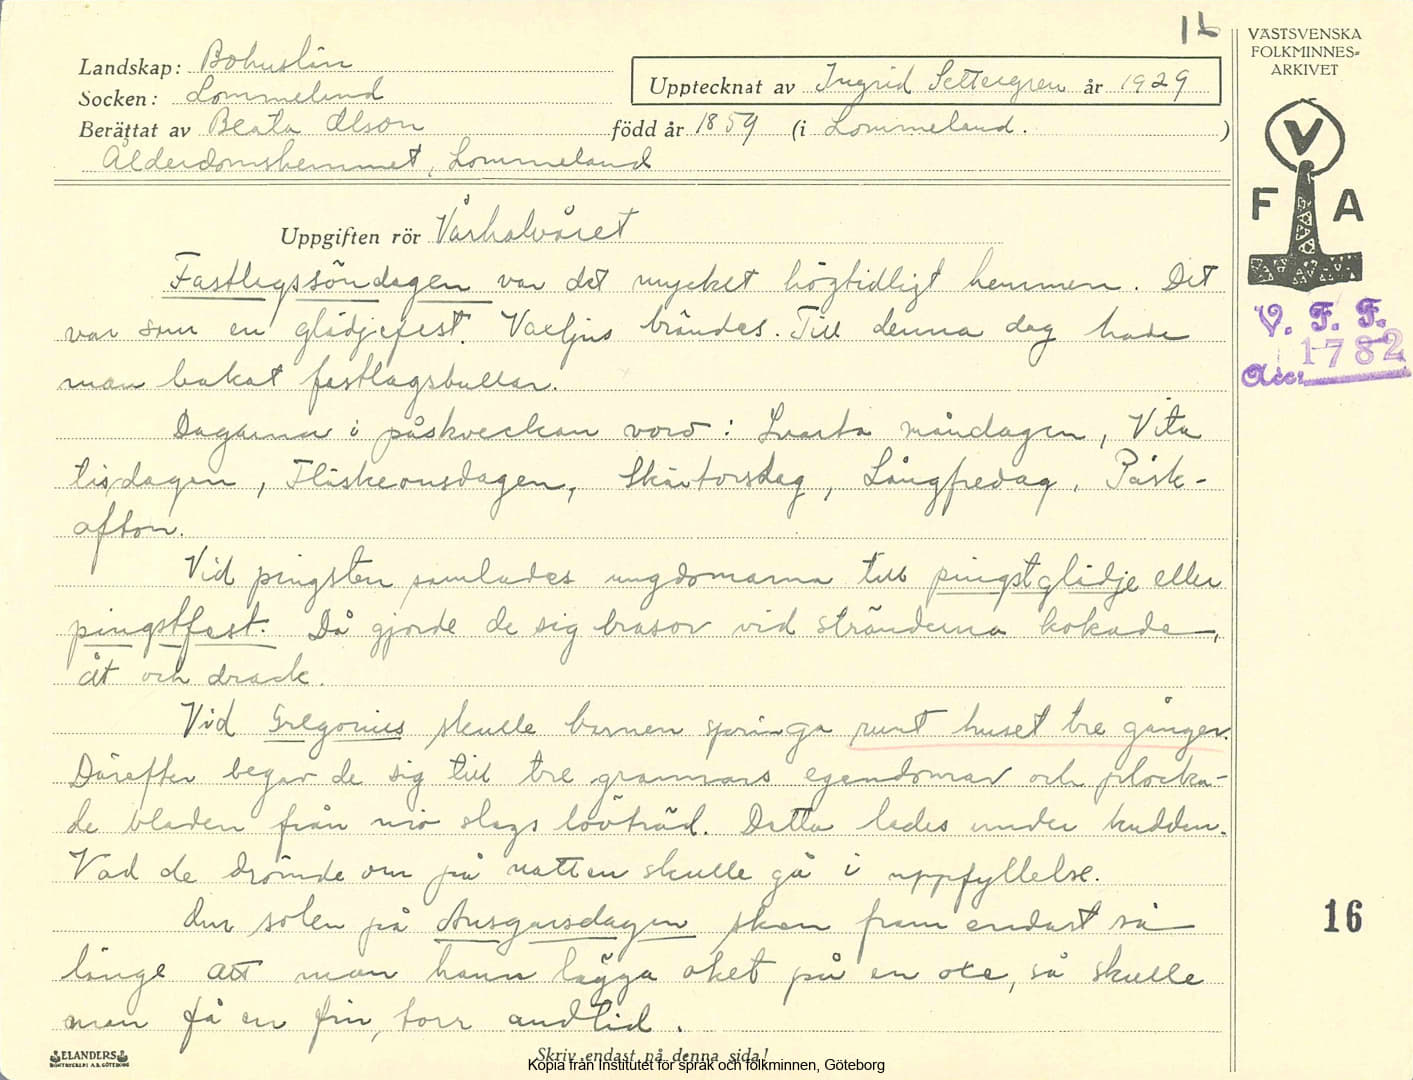 16
VÄSTSVENSKA
FOLKMINNES=
ARKIVET
Landskap: Bohuslän
Upptecknat av Ingrid Settergren år 1929
Socken: Lommeland
Berättat av Beata Olson född år 1859 (i Lommeland. )
Ålderdomshemmet, Lommeland
V
F A
Uppgiften rör Vårhalvåret
Fastlagssöndagen var det mycket högtidligt hemmen. Det
var som en glädjefest. Vaxljus brändes. Till denna dag hade
man bakat fastlagsbullar.
V. F. F.
Acc. 1782
Dagarna i påskveckan voro: Svarta måndagen, Vita
tisdagen, Fläskeonsdagen, Skärtorsdag, Långfredag, Påsk-
afton.
Vid pingsten samlades ungdomarna till pingstglädje eller
pingstfest. Då gjorde de sig brasor vid stränderna kokade,
åt och drack.
Vid Gregorius skulle barnen springa runt huset tre gånger.
Därefter begav de sig till tre grannars egendomar och plocka-
de bladen från nio slags lövträd. Detta lades under kudden.
Vad de drömde om på natten skulle gå i uppfyllelse.
Om solen på Ansgarsdagen sken fram endast så
länge att man hann lägga oket på en oxe, så skulle
man få en fin, torr andtid.
16
ELANDERS
BOKTRYCKERI A.B. GÖTEBORG
Skriv endast på denna sida!
Kopia från Institutet för språk och folkminnen, Göteborg